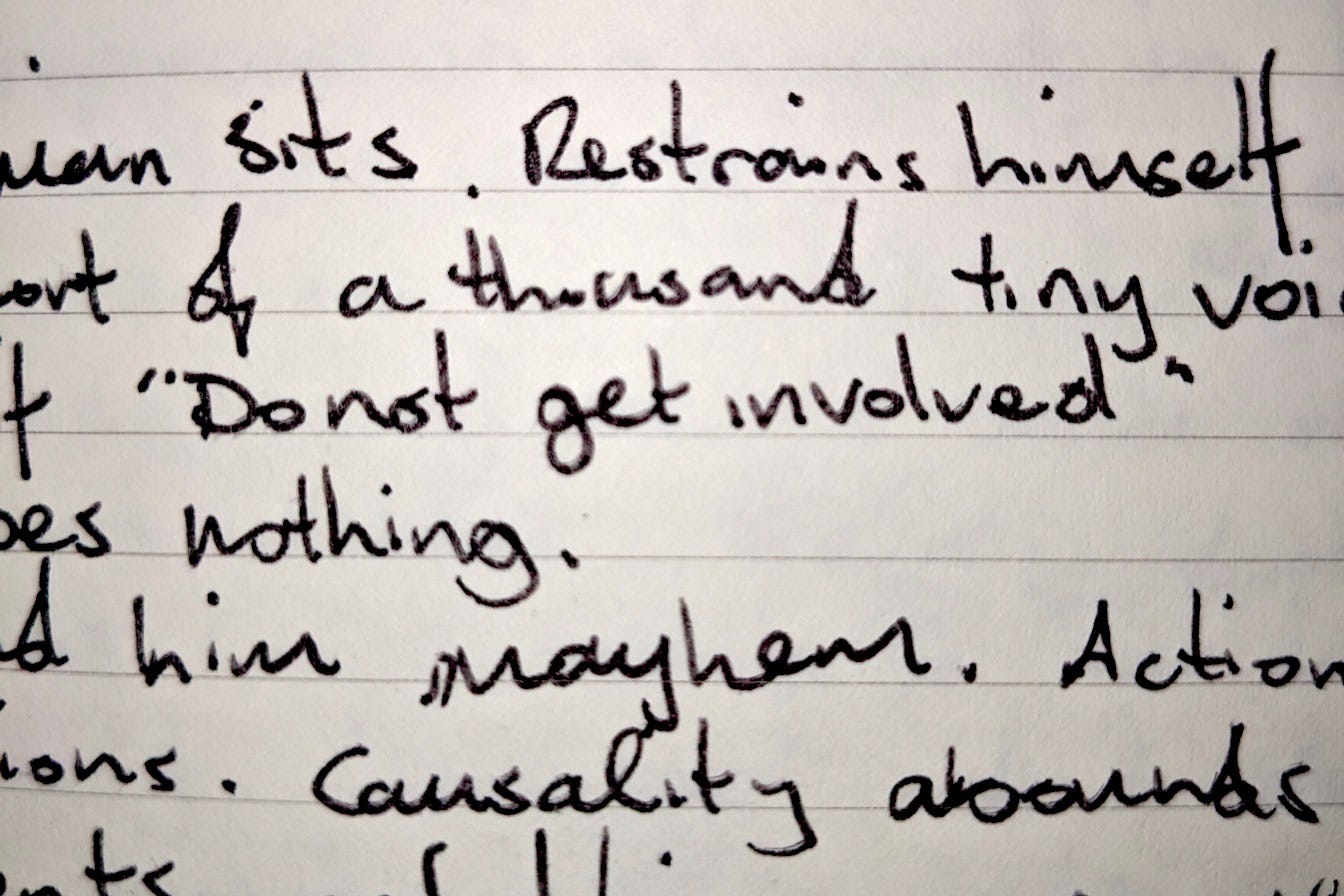 man sits. Restrains himself
ort of a thousand tiny voi
f "Do not get involved"
oes nothing.
d him mayhem. Action
ions. Causality abounds
nts